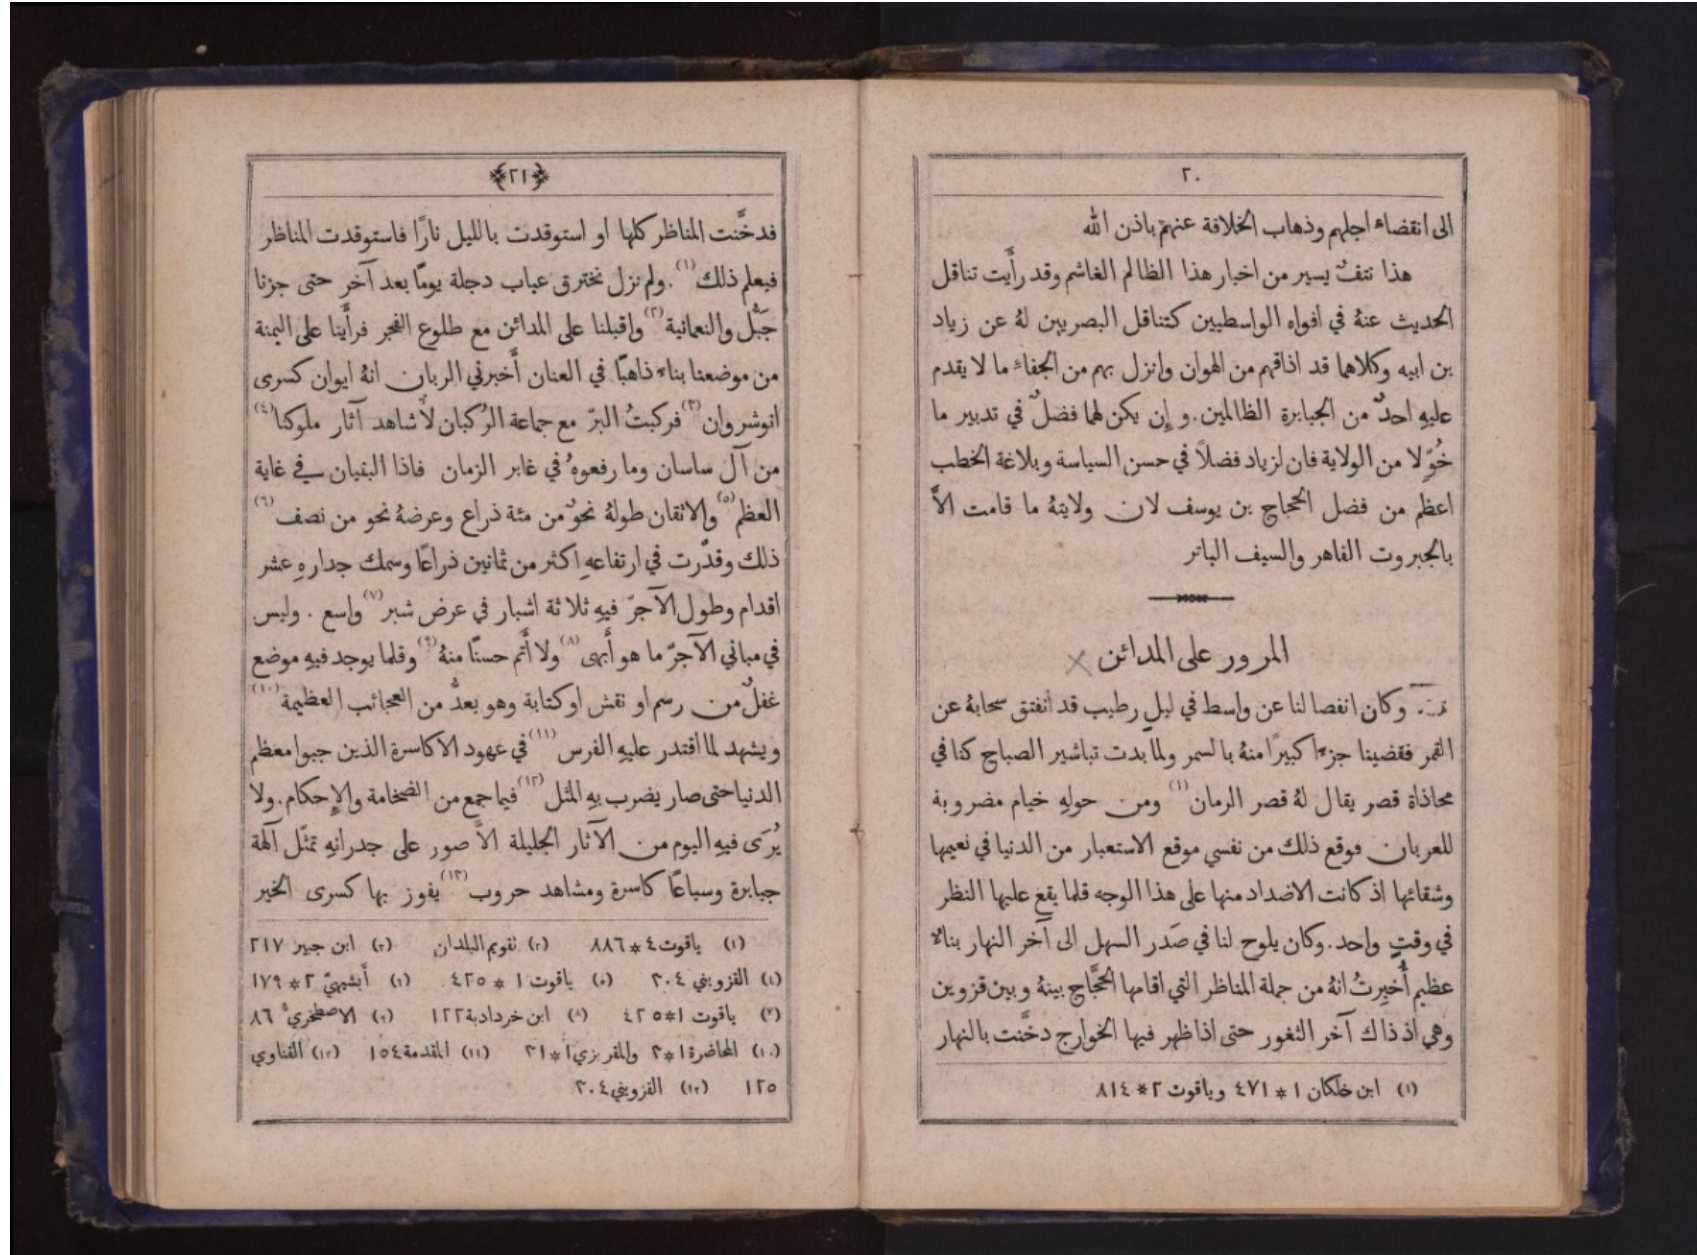 ٢٠
الى انقضاء اجلهم وذهاب الخلافة عنهم باذن الله
هذا نتفٌ يسير من اخبار هذا الظالم الغاشم وقد رأَيت تناقل
الحديث عنهُ في افواه الواسطيين كتناقل البصريين لهُ عن زياد
بن ابيه وكلاهما قد اذاقهم من الهوان وانزل بهم من الجفاءِ ما لا يقدم
عليهِ احدٌ من الجبابرة الظالمين. و إِن يكن لهما فضلٌ في تدبير ما
خُوِّلا من الولاية فان لزياد فضلاً في حسن السياسة وبلاغة الخطب
اعظم من فضل الحجاج بن يوسف لان ولايتهُ ما قامت الاَّ
بالجبروت القاهر والسيف الباتر
المرور على المدائن
وكان انفصالنا عن واسط في ليلٍ رطيب قد انفتق سحابهُ عن
القمر فقضينا جزءًا كبيرًا منهُ بالسمر ولما بدت تباشير الصباح كنا في
محاذاة قصر يقال لهُ قصر الرمان (١) ومن حولهِ خيام مضروبة
للعربان فوقع ذلك من نفسي موقع الاستعبار من الدنيا في نعيمها
وشقائها اذ كانت الاضداد منها على هذا الوجه قلما يقع عليها النظر
في وقتٍ واحد. وكان يلوح لنا في صَدر السهل الى آخر النهار بناءٌ
عظيم أُخبِرتُ انهُ من جملة المناظر التي اقامها الحجَّاج بينهُ وبين قزوين
وهي اذ ذاك آخر الثغور حتى اذا ظهر فيها الخوارج دخَّنت بالنهار
(١) ابن خلكان ١ * ٤٧١ وياقوت ٢ * ٨١٤
٢١
فدخَّنت المناظر كلها او استوقدت بالليل نارًا فاستوقدت المناظر
فيعلم ذلك (١). ولم نزل نخترق عباب دجلة يومًا بعد آخر حتى جزنا
جَبُّل والنعمانية (٢) واقبلنا على المدائن مع طلوع الفجر فرأَينا على اليمنة
من موضعنا بناءً ذاهبًا في العنان أَخبرني الربان انهُ ايوان كسرى
انوشروان (٣) فركبتُ البرّ مع جماعة الرُكبان لأُشاهد آثار ملوكنا (٤)
من آل ساسان وما رفعوهُ في غابر الزمان فاذا البنيان في غاية
العظم (٥) والاتقان طولهُ نحوٌ من مئة ذراع وعرضهُ نحو من نصف (٦)
ذلك وقدَّرت في ارتفاعهِ اكثر من ثمانين ذراعًا وسمك جدارهِ عشر
اقدام وطول الآجرّ فيهِ ثلاثة اشبار في عرض شبر (٧) واسع . وليس
في مباني الآجرّ ما هو أَبهى (٨) ولا أَتم حسنًا منهُ (٩) وقلما يوجد فيهِ موضع
غفلٌ من رسم او نقش او كتابة وهو بعدُ من العجائب العظيمة (١٠)
ويشهد لما اقتدر عليهِ الفرس (١١) في عهود الاكاسرة الذين جبوا معظم
الدنيا حتى صار يضرب بهِ المثل (١٢) فيما جمع من الضخامة والإِحكام. ولا
يُرَى فيهِ اليوم من الآثار الجليلة الاَّ صور على جدرانهِ تمثّل آلهة
جبابرة وسباعًا كاسرة ومشاهد حروب (١٣) يفوز بها كسرى الخير
(١) ياقوت ٤ * ٨٨٦ (٢) تقويم البلدان (٣) ابن جبير ٢١٧
(٤) القزويني ٣٠٤ (٥) ياقوت ١ * ٤٢٥ (٦) أَبشيهيّ ٢ * ١٧٩
(٧) ياقوت ١ * ٤٢٥ (٨) ابن خردادبة ١٢٢ (٩) الاصطخري ٨٦
(١٠) المحاضرة ١ * ٣ والمقريزي ١ * ٣١ (١١) المقدمة ١٥٤ (١٢) القناوي
١٢٥ (١٣) القزويني ٣٠٤